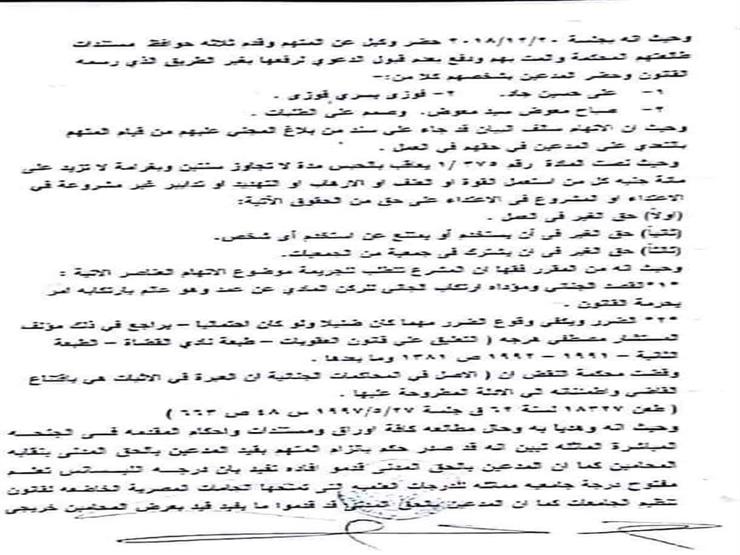 وحيث انه بجلسة ٢٠١٨/١٢/٢٠ حضر وكيل عن المتهم وقدم ثلاثه حوافظ مستندات
طالعتهم المحكمة والمت بهم ودفع بعدم قبول الدعوي لرفعها بغير الطريق الذي رسمه
القانون وحضر المدعين بشخصهم كلا من:-
١- على حسين جاد. ٢- فوزى يسرى فوزى .
٣- صباح معوض سيد معوض. وصمم على الطلبات .
وحيث ان الاتهام سالف البيان قد جاء على سند من بلاغ المجني عليهم من قيام المتهم
بالتعدي على المدعين في حقهم في العمل .
وحيث نصت المادة رقم ٣٧٥ /١ يعاقب بالحبس مدة لا تجاوز سنتين وبغرامة لا تزيد على
مائة جنيه كل من استعمل القوة او العنف او الارهاب او التهديد او تدابير غير مشروعة في
الاعتداء او المشروع في الاعتداء على حق من الحقوق الآتية:
(اولاً) حق الغير في العمل .
(ثانياً) حق الغير فى أن يستخدم أو يمتنع عن استخدام أى شخص.
(ثالثاً) حق الغير فى ان يشترك في جمعية من الجمعيات.
وحيث انه من المقرر فقها ان المشرع تتطلب لتجريمة موضوع الاتهام العناصر الاتية :
*١* القصد الجنائي ومؤداه ارتكاب الجانى للركن المادي عن عمد وهو عالم بارتكابه امر
يحرمة القانون .
*٢* الضرر ويكفى وقوع الضرر مهما كان ضئيلا ولو كان احتماليا – يراجع في ذلك مؤلف
المستشار مصطفى هرجه ( التعليق على قانون العقوبات – طبعة نادي القضاة – الطبعة
الثانية – ١٩٩١ – ١٩٩٢ ص ١٣٨١ وما بعدها .
وقضت محكمة النقض ان ( الاصل في المحاكمات الجنائية ان العبرة في الاثبات هي باقتناع
القاضي واطمئنانه الى الادلة المطروحة عليها .
( طعن ١٨٣٢٧ لسنة ٦٢ ق جلسة ١٩٩٧/٥/٢٧ س ٤٨ ص ٦٦٣ )
وحيث انه وهديا به وحال مطالعه كافة اوراق ومستندات واحكام المقدمه فى الجنحه
المباشرة الماثله تبين انه قد صدر حكم بالزام المتهم بقيد المدعين بالحق المدنى بنقابه
المحامين كما ان المدعين بالحق المدنى قدمو افاده تفيد بان درجه الليسانس تعلم
مفتوح درجة جامعيه مماثله للدرجات العلميه التى تمنحها الجامعات المصرية الخاضعه لقانون
تنظيم الجامعات كما ان المدعين بالحق المدنى قد قدموا ما يفيد قيد بعرض المحامين خريجى